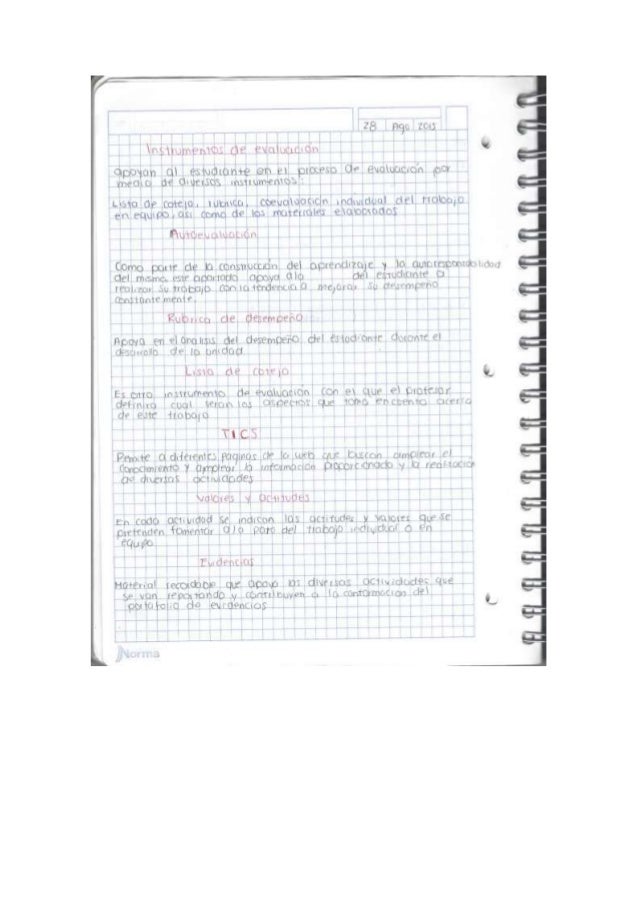 28 Ago 2015
Instrumentos de evaluación
apoyan al estudiante en el proceso de evaluación por
medio de diversos instrumentos:
Lista de cotejo, rubrica, coevaluación individual del trabajo
en equipo, asi como de los materiales elaborados
Autoevaluación
Como parte de la construcción del aprendizaje y la autoresponsabilidad
del mismo, este apartado apoya a la del estudiante a
realizar su trabajo con la tendencia a mejorar su desempeño
constantemente.
Rubrica de desempeño
Apoya en el analisis del desempeño del estudiante durante el
desarrollo de la unidad
Lista de cotejo
Es otro instrumento de evaluación con el que el profesor
definira cual seran los aspectos que tomo en cuenta acerca
de este trabajo
TICS
Permite a diferentes paginas de la web que buscan ampliar el
conocimiento y ampliar la información proporcionada y la realización
de diversas actividades
Valores y actitudes
En cada actividad se indican las actitudes y valores que se
pretenden fomentar a la para del trabajo individual o en
equipo
Evidencias
Material que apoya las diversas actividades que
se van reportando y contribuyen a la conformación del
portafolio de evidencias
Norma